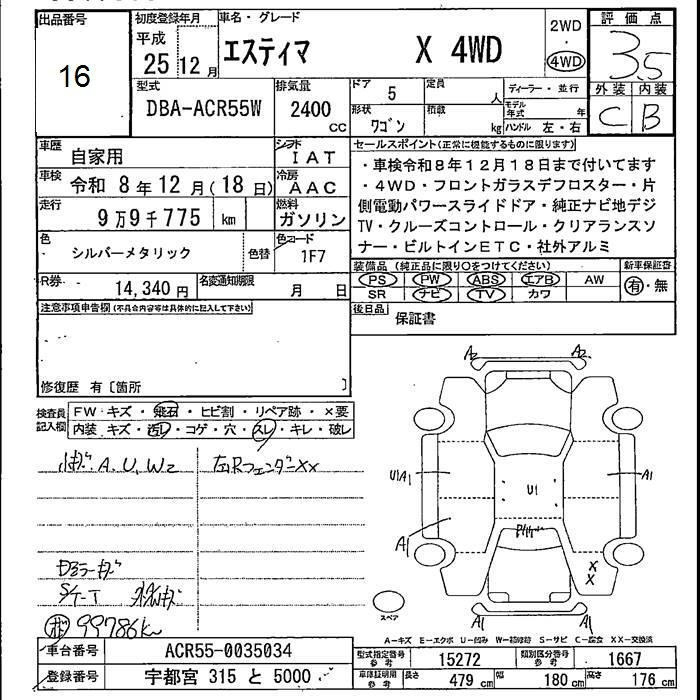 出品番号
16
初度登録年月
平成
25 12月
車名・グレード
エスティマ X 4WD
2WD
・
4WD
評価点
3.5
外装 内装
C B
型式
DBA-ACR55W
排気量
2400
CC
ドア
5
定員
人
形状
ワゴン
積載
kg
ディーラー・並行
モデル年式
年
ハンドル 左・右
車歴
自家用
シフト
IAT
車検
令和 8年12月(18日)
冷房
AAC
走行
9万9千775 km
燃料
ガソリン
色
シルバーメタリック
色替
色コード
1F7
R券
14,340円
名変通知期限
月 日
セールスポイント(正常に機能するものに限ります)
・車検令和8年12月18日まで付いてます
・4WD・フロントガラスデフロスター・片
側電動パワースライドドア・純正ナビ地デジ
TV・クルーズコントロール・クリアランスソ
ナー・ビルトインETC・社外アルミ
装備品(純正品に限り○をつけてください)
PS PW ABS エアB AW
SR ナビ TV カワ
新車保証書
有・無
後日品
保証書
注意事項申告欄(不具合内容等は具体的に記入して下さい)
修復歴 有〔箇所 〕
検査員
記入欄
FW キズ・飛石・ヒビ割・リペア跡・×要
内装 キズ・汚レ・コゲ・穴・スレ・キレ・破レ
A.U.W2
左右Rフェンダー××
99786km
A2 A2
U1A1
U1
A1
A1
××
A1 A1
スペア
A-キズ E-エクボ U-凹み W-補修跡 S-サビ C-腐食 XX-交換済
車台番号
ACR55-0035034
登録番号
宇都宮 315 と 5000
型式指定番号
参考
15272
類別区分番号
参考
1667
車庫証明用
参考
長さ
479 cm
幅
180 cm
高さ
176 cm